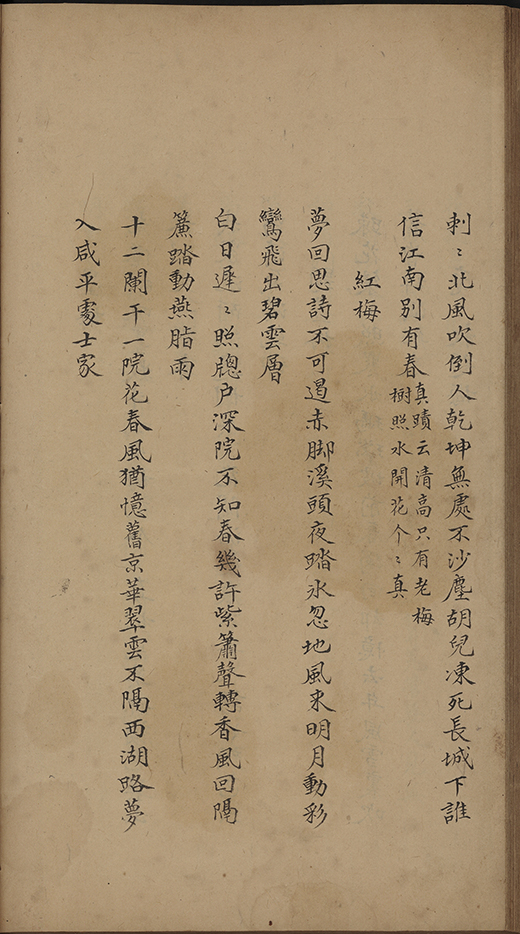 刺〻北風吹倒人乾坤無處不沙塵胡兒凍死長城下誰
信江南别有春
真蹟云清高只有老梅
樹照水開花个〻真
紅梅
夢回思詩不可遏赤脚溪頭夜踏氷忽地風来明月動彩
鸞飛出碧雲層
白日遲〻照牕户深院不知春幾許紫簫聲轉香風回隔
簾踏動燕脂雨
十二闌干一院花春風猶憶舊京華翠雲不隔西湖路夢
入咸平䖏士家